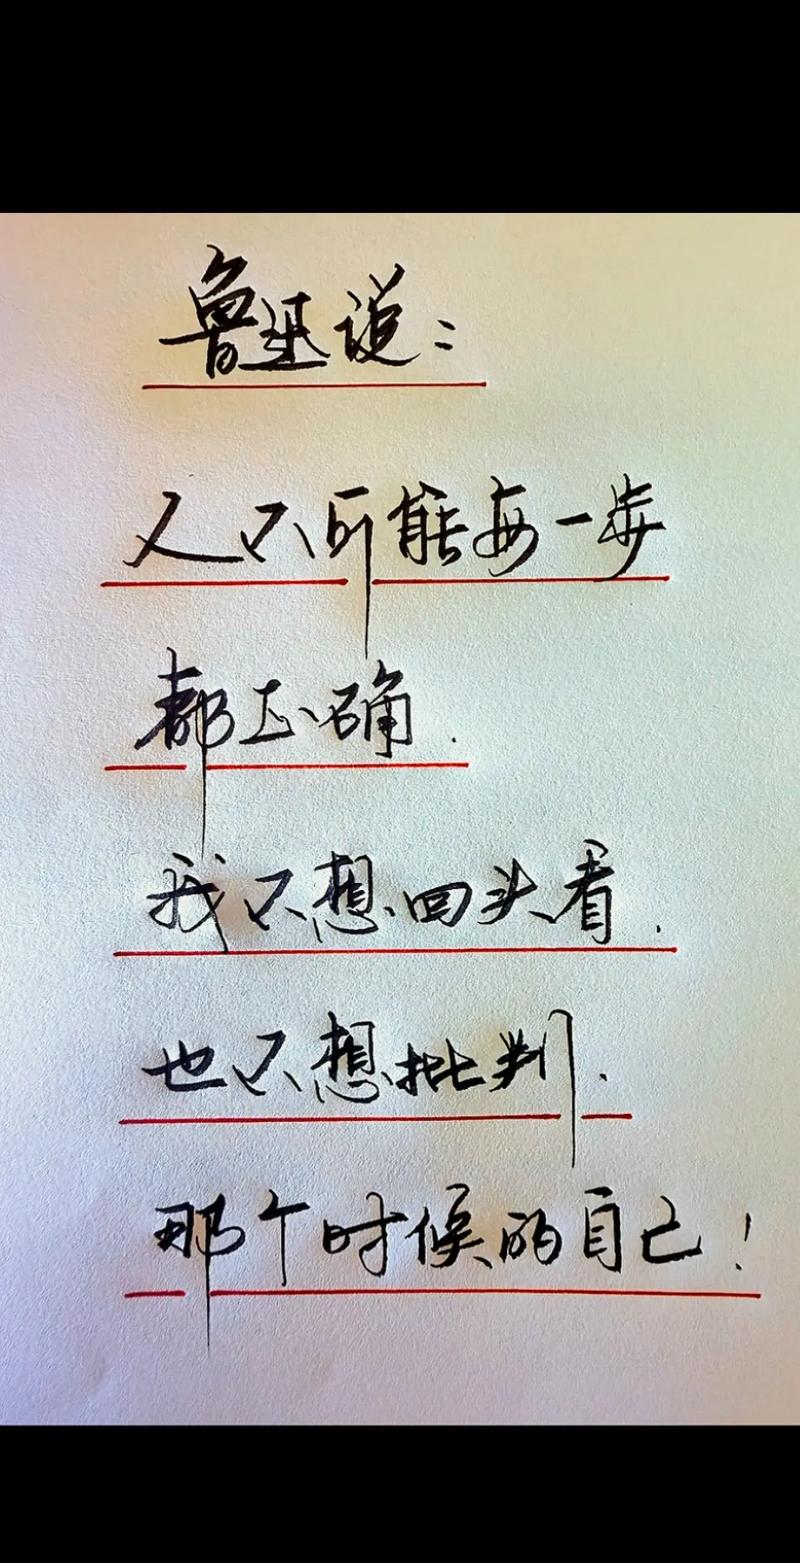 鲁迅说：
人不可能每一步
都正确.
我不想回头看.
也不想批判.
那个时候的自己！